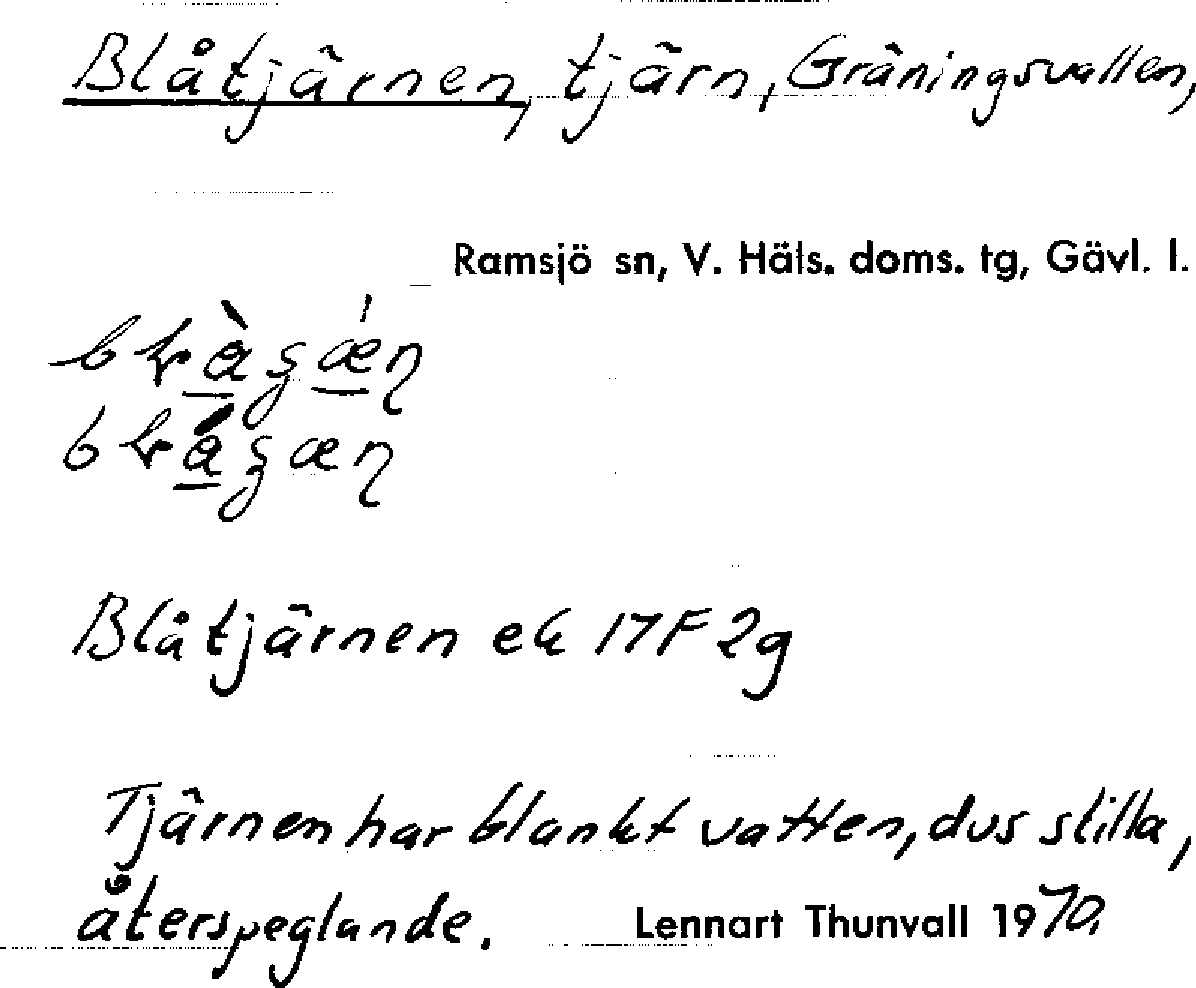 Blåtjärnen, tjärn, Gräningsvallen,
Ramsjö sn, V. Häls. doms. tg, Gävl. l.
Blåtjärnen ek 17F 2g
Tjärnen har blankt vatten, dvs stilla,
återspeglande. Lennart Thunvall 1970